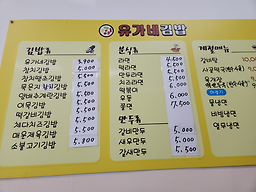 유가네김밥
김밥류
유가네김밥 3,900
참치김밥 5,000
참치땡초김밥 5,500
묵은지참치김밥 5,500
양배추계란김밥 5,000
어묵김밥 5,500
떡갈비김밥 5,500
체다치즈김밥 5,500
매운제육김밥 5,800
소불고기김밥 5,800
분식류
라면 4,500
떡라면 5,000
만두라면 5,500
치즈라면 5,000
떡볶이 6,000
우동 6,000
쫄면 7,500
만두류
갈비만두 5,000
새우만두 5,000
김새만두 5,500
계절메뉴
갈비탕 10,0
사골떡국
유가장
물냉면
비빔냉면
열무냉면